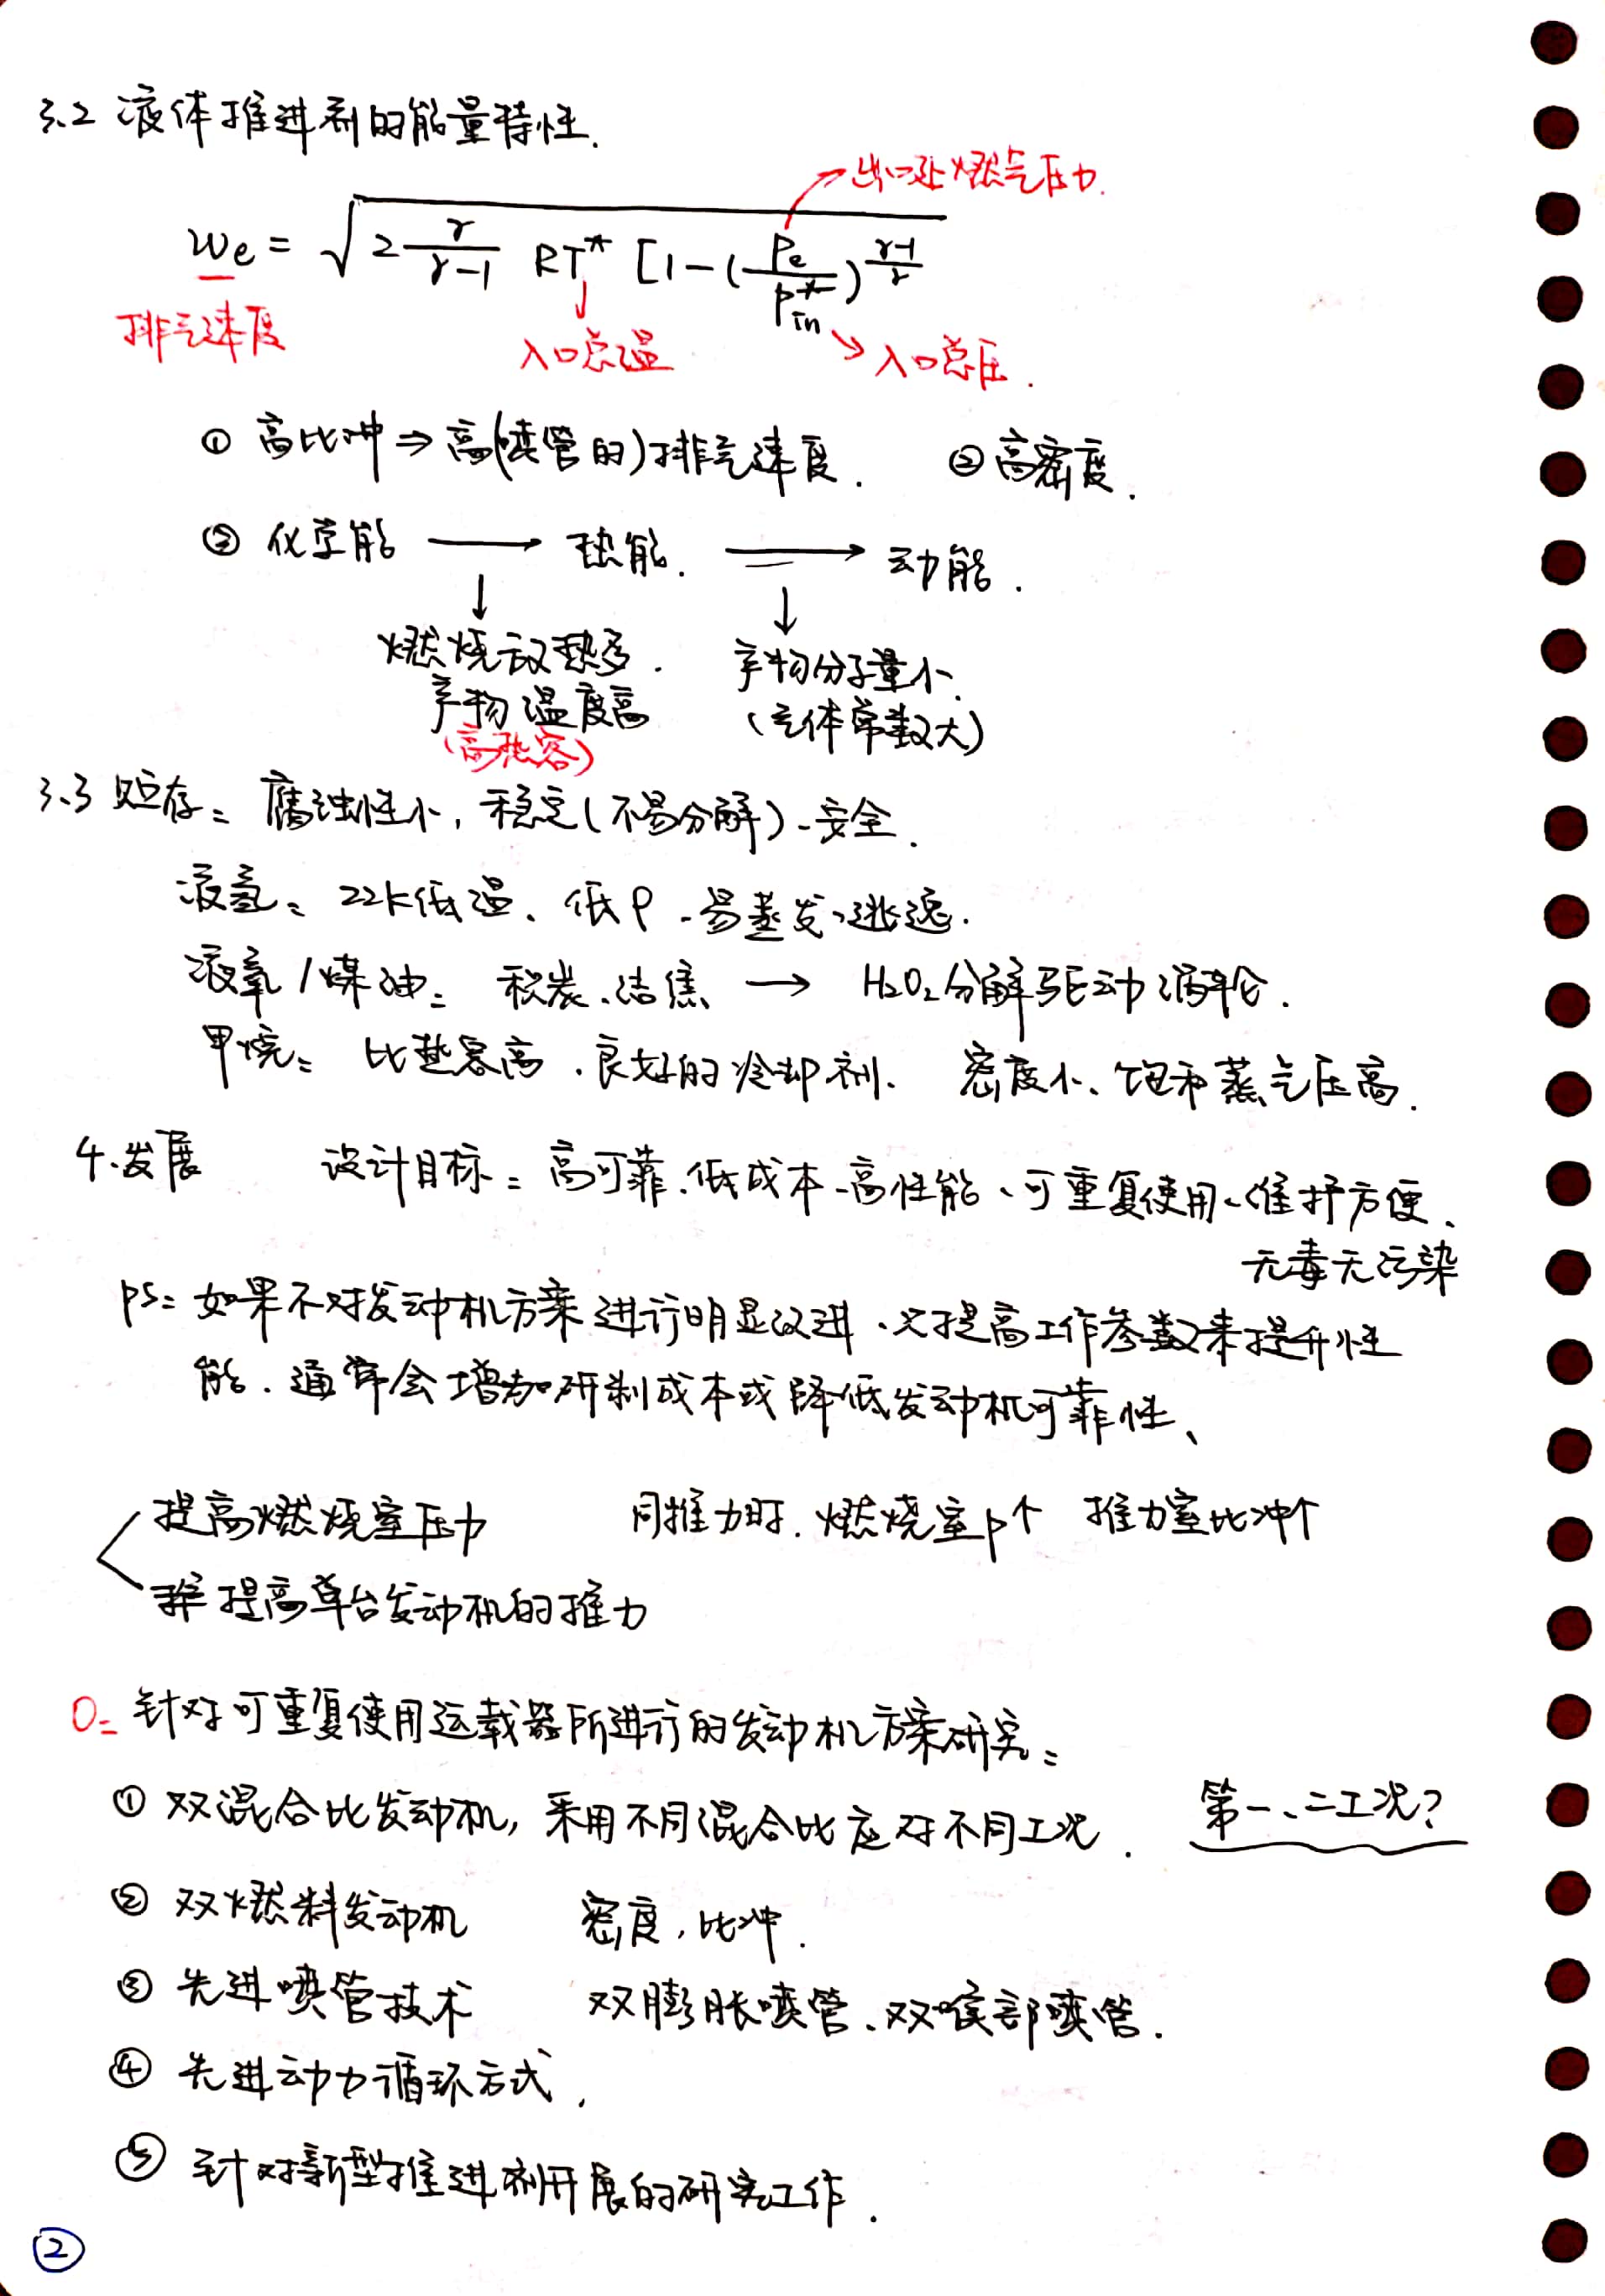 3.2 液体推进剂的能量特性.
出口处燃气压力.
We = √(2 γ/(γ-1) RT* [1-(Pe/P*in)^((γ-1)/γ)
排气速度
入口总温
入口总压.
① 高比冲 ⇒ 高(喷管的)排气速度. ② 高密度.
③ 化学能 → 热能. → 动能.
↓ ↓
燃烧放热多. 产物分子量小.
产物温度高 (气体常数大)
(高热容)
3.3 贮存: 腐蚀性小, 稳定(不易分解)、安全.
液氢: 22K低温、低ρ、易蒸发、逃逸.
液氧/煤油: 积炭、结焦 → H₂O₂分解驱动涡轮.
甲烷: 比热容高、良好的冷却剂、 密度小、饱和蒸气压高.
4.发展 设计目标: 高可靠、低成本、高性能、可重复使用、维护方便、
无毒无污染
ps: 如果不对发动机方案进行明显改进、只提高工作参数来提升性
能.通常会增加研制成本或降低发动机可靠性、
提高燃烧室压力 同推力时.燃烧室p↑ 推力室比冲↑
提高单台发动机的推力
0: 针对可重复使用运载器所进行的发动机方案研究:
① 双混合比发动机, 采用不同混合比应对不同工况. 第一、二工况?
② 双燃料发动机 密度,比冲.
③ 先进喷管技术 双膨胀喷管、双喉部喷管.
④ 先进动力循环方式.
⑤ 针对新型推进剂开展的研究工作.
②